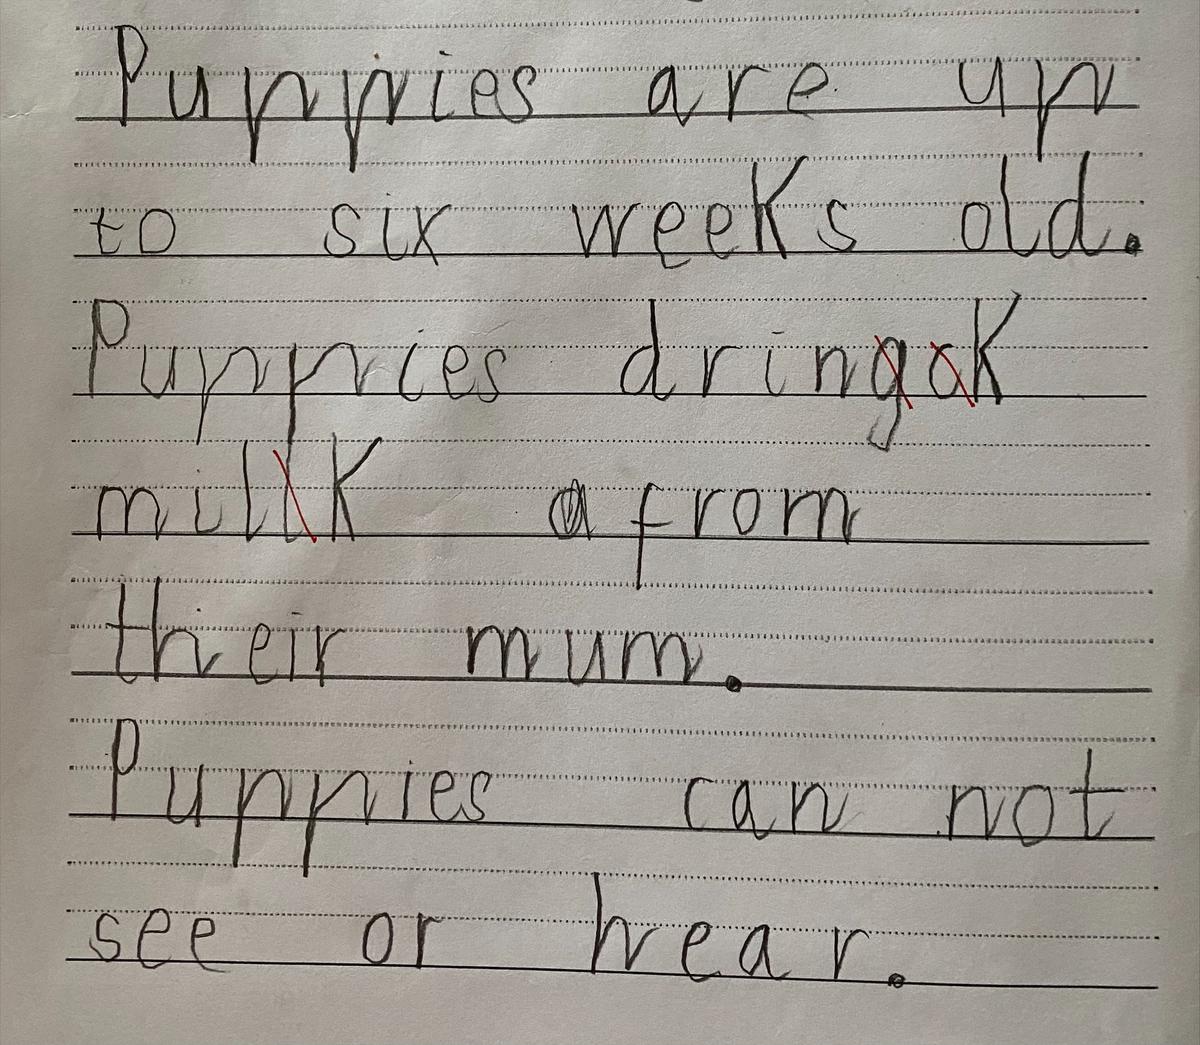 Puppies are up
to six weeks old.
Puppies dringak
millk a from
their mum.
Puppies can not
see or hear.